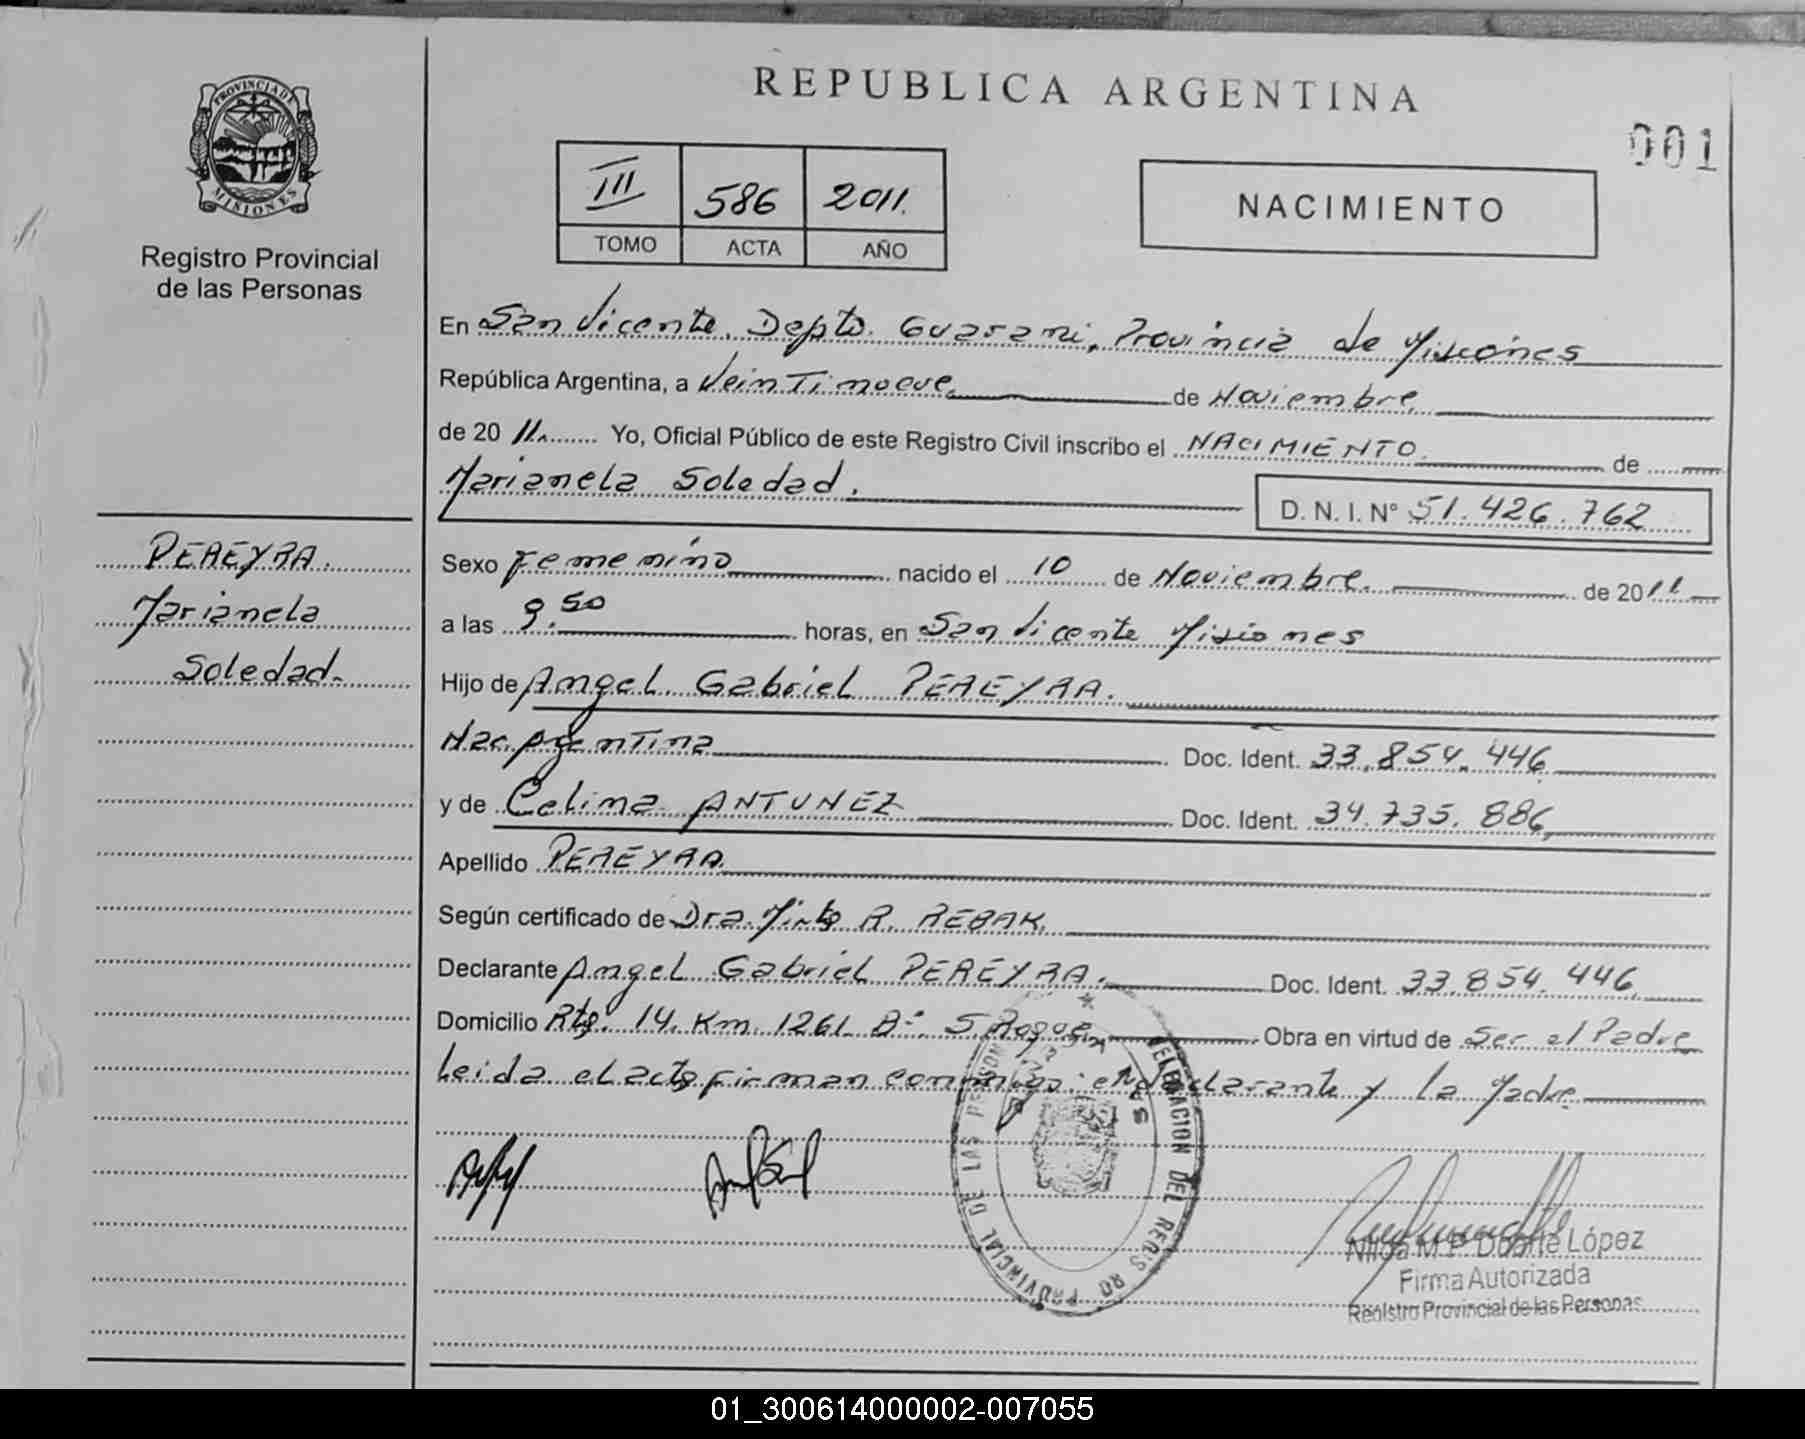 REPUBLICA ARGENTINA
001
PROVINCIA DE
MISIONES
Registro Provincial
de las Personas
III 586 2011.
TOMO ACTA AÑO
NACIMIENTO
En San Vicente, Depto. Guarani, Provincia de Misiones
República Argentina, a Veintinueve de Noviembre
de 2011. Yo, Oficial Público de este Registro Civil inscribo el NACIMIENTO de
Marianela Soledad.
D. N. I. N° 51.426.762
PEREYRA.
Marianela
Soledad.
Sexo Femenino nacido el 10 de Noviembre. de 2011
a las 9.50 horas, en San Vicente Misiones
Hijo de Angel Gabriel PEREYRA.
Nac. Argentina Doc. Ident. 33.854.446
y de Celima ANTUNEZ Doc. Ident. 34.735.886
Apellido PEREYRA
Según certificado de Dra. R. REBAK.
Declarante Angel Gabriel PEREYRA. Doc. Ident. 33.854.446
Domicilio Rta. 14 Km 1261 B° S. Roque Obra en virtud de Ser el Padre
Leida el acta firman conmigo: el declarante y la Madre
DELEGACION DEL REGISTRO PROVINCIAL DE LAS PERSONAS
Nilda M P Duarte López
Firma Autorizada
Registro Provincial de las Personas
01_300614000002-007055